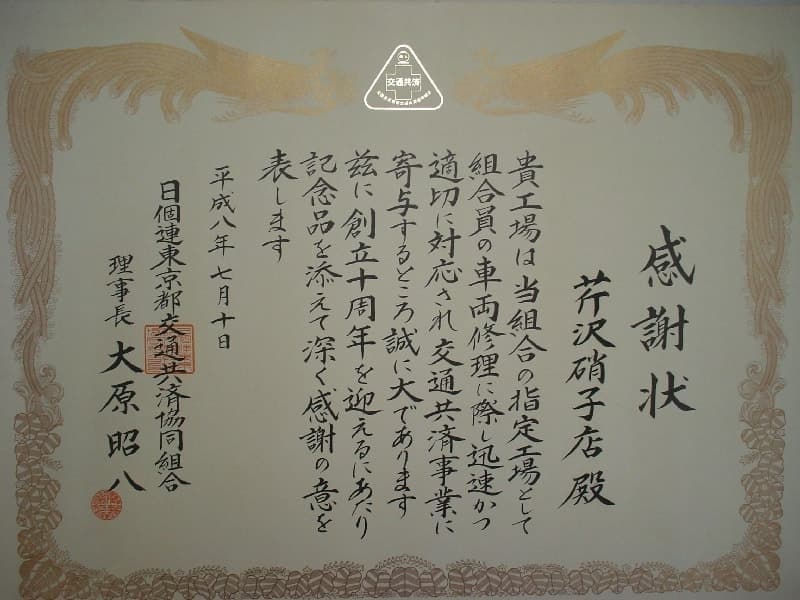 交通共済
感謝状
芹沢硝子店殿
貴工場は当組合の指定工場として
組合員の車両修理に際し迅速かつ
適切に対応され交通共済事業に
寄与するところ誠に大であります
茲に創立十周年を迎えるにあたり
記念品を添えて深く感謝の意を
表します
平成八年七月十日
日個連東京都交通共済協同組合
理事長 大原昭八